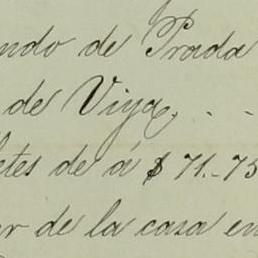 ndo de Prada
de Viya, . -
etes de á $ 71.-75
r de la casa en